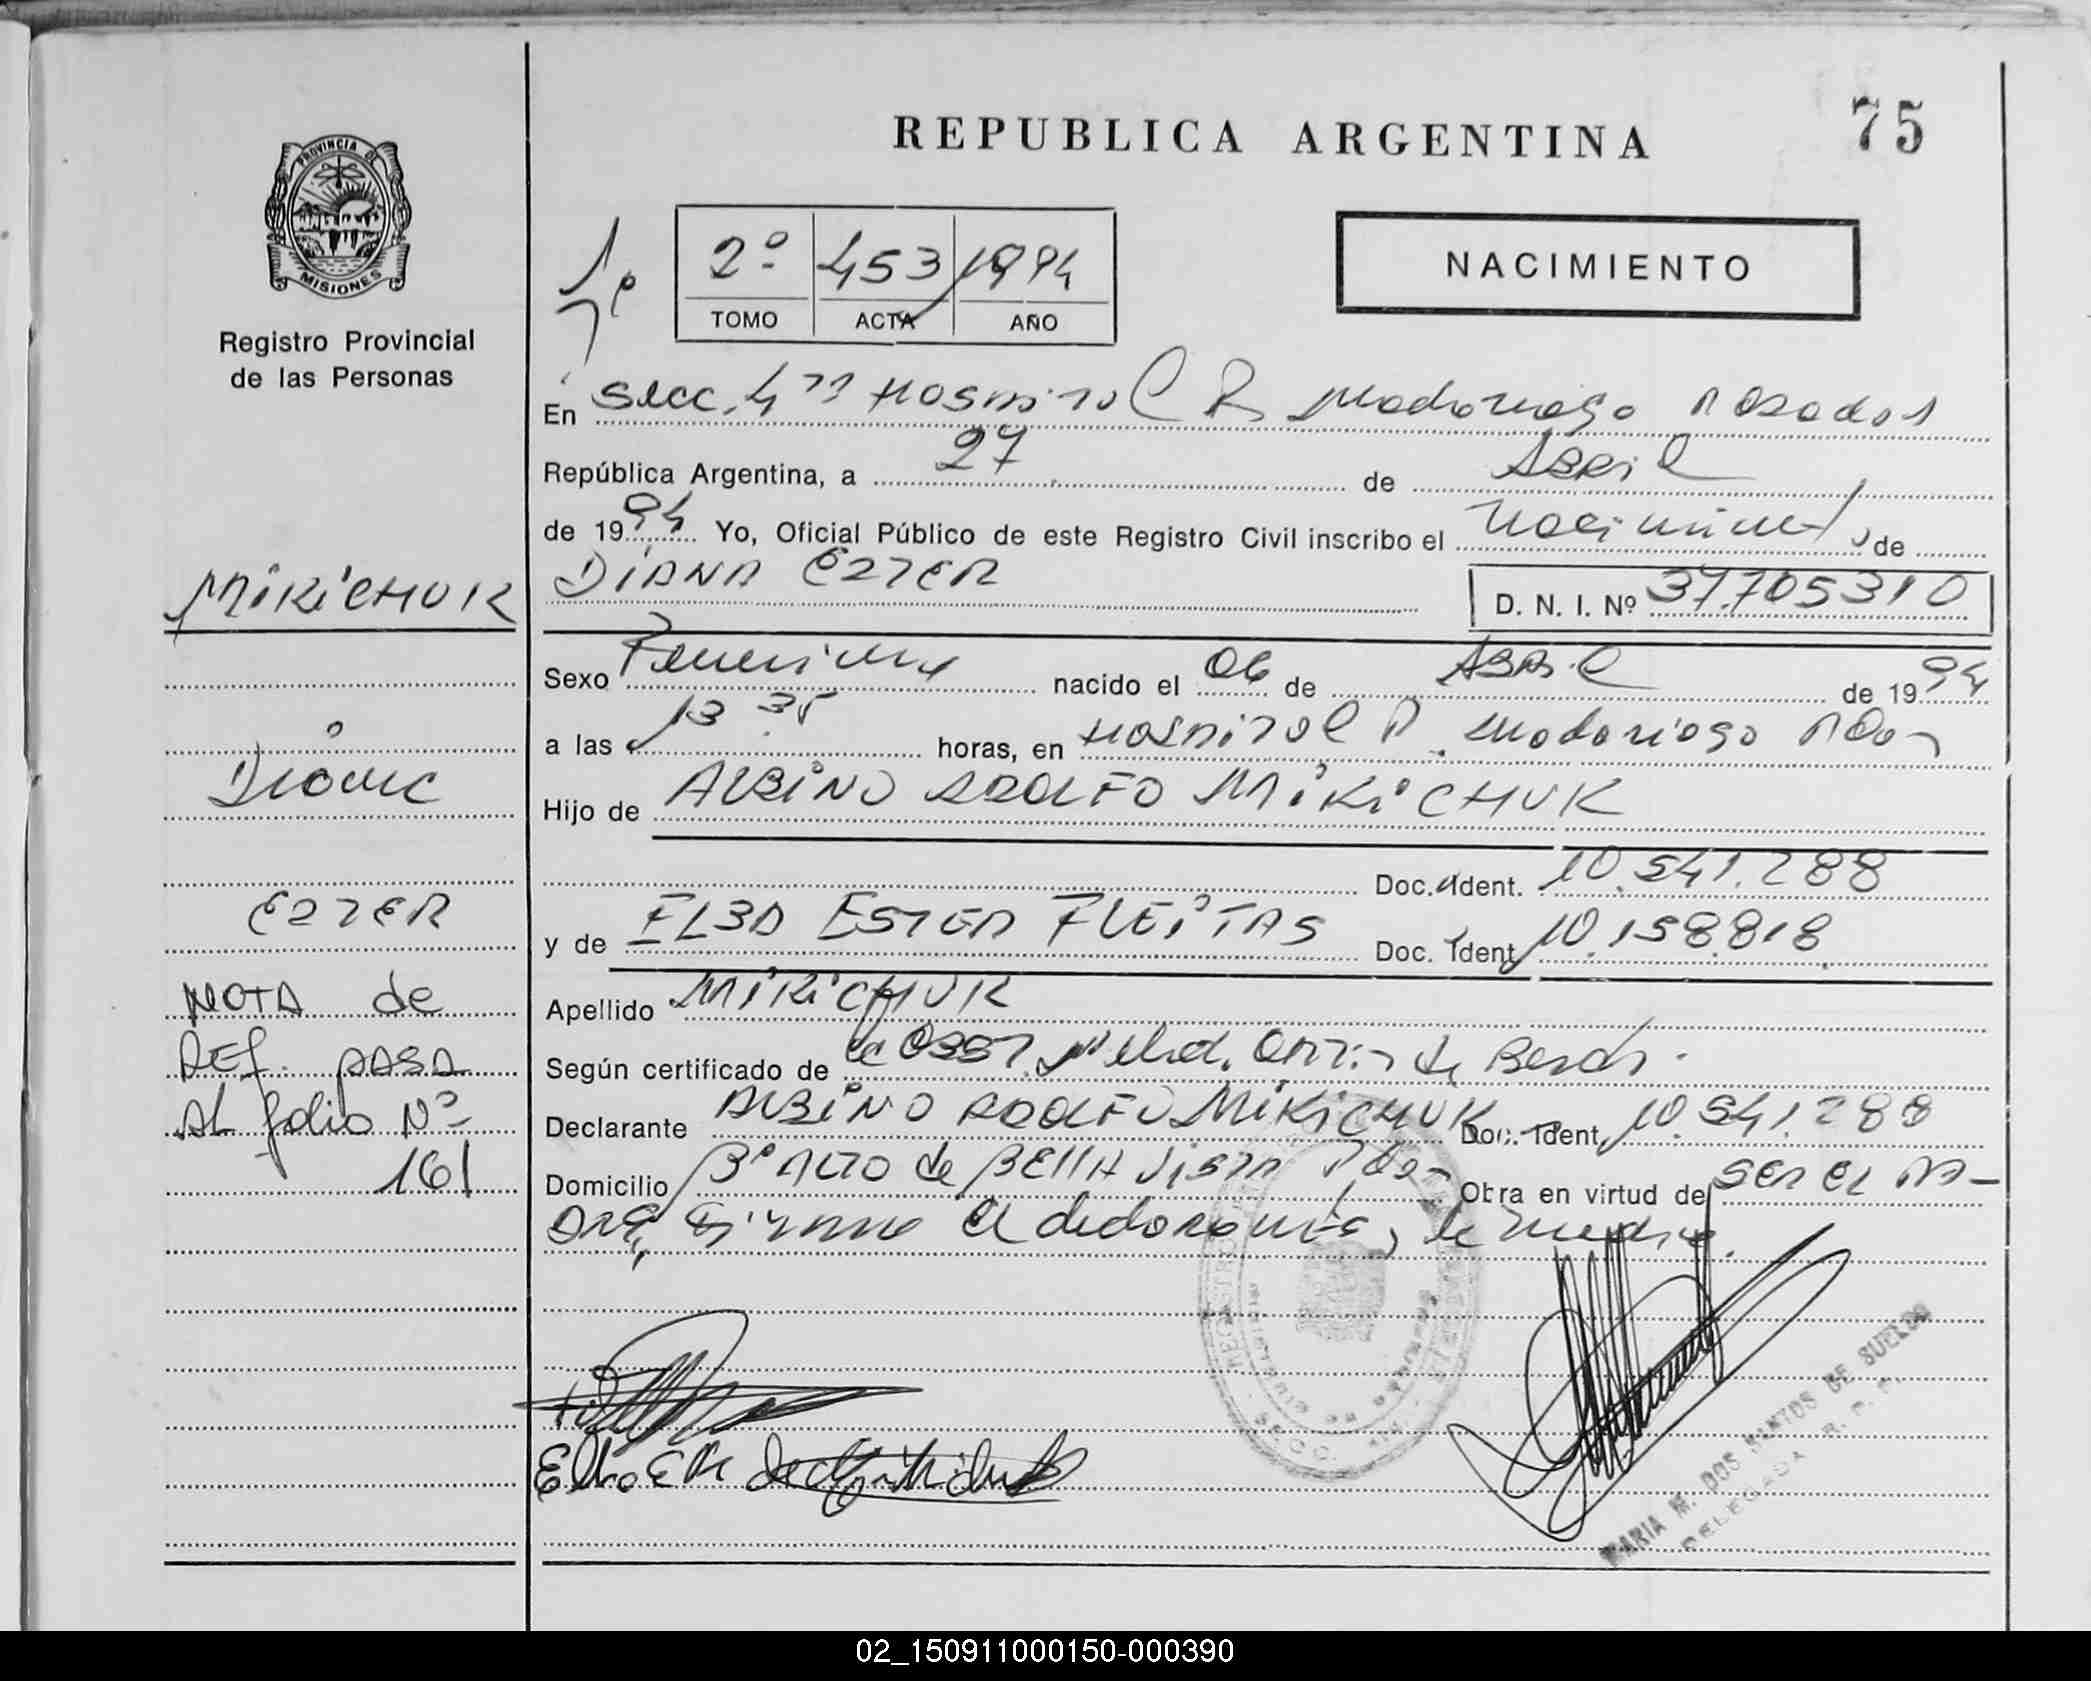 REPUBLICA ARGENTINA
75
PROVINCIA DE
MISIONES
Registro Provincial
de las Personas
2º 453 1994
TOMO ACTA AÑO
NACIMIENTO
En Secc. 4ta Hospital R Madariaga Posadas
República Argentina, a 27 de Abril
de 1994 Yo, Oficial Público de este Registro Civil inscribo el Nacimiento de
DIANA ESTER D. N. I. Nº 37.705310
MIKICHUK
Sexo Femenino nacido el 06 de Abril de 1994
a las 13 35 horas, en Hospital R. Madariaga
Hijo de ALBINO ADOLFO MIKICHUK
Doc. Ident. 10.541.288
y de ELBA ESTER FLEITAS Doc. Ident 10.158.818
Apellido MIKICHUK
Según certificado de la Obst.
Declarante ALBINO ADOLFO MIKICHUK Doc. Ident. 10.541.288
Domicilio Bº ALTO de BELLA VISTA Obra en virtud de SER EL PA-
DRE, Firma el declarante, la madre.
Diana
ESTER
NOTA de
REF. PASA
AL folio Nº
161
MARIA M. DOS SANTOS DE SUELDO
DELEGADA R. P. P.
02_150911000150-000390